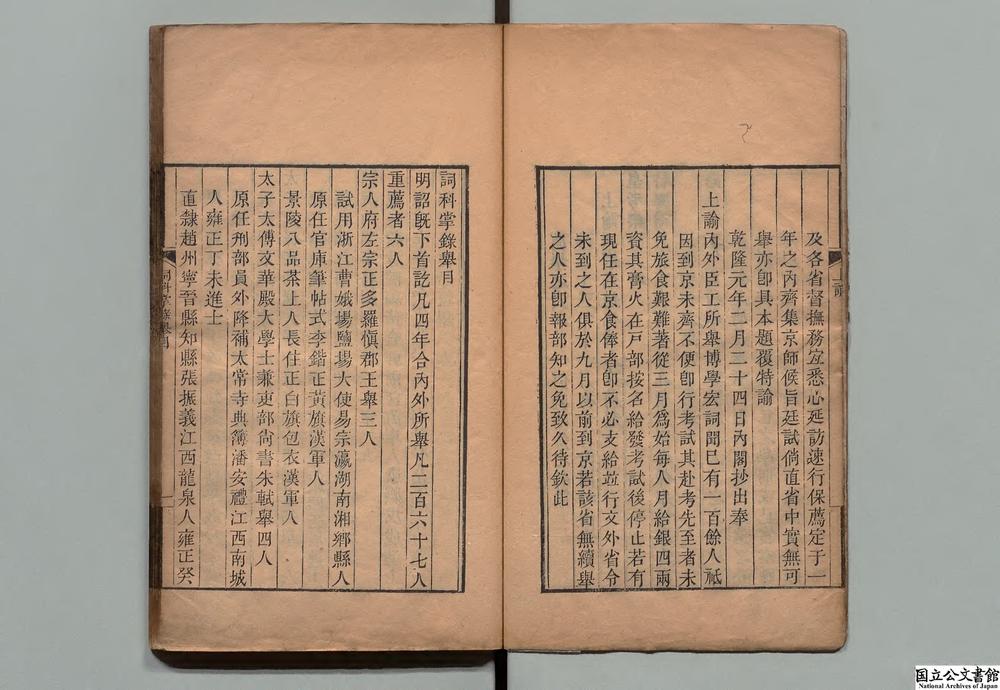 及各省督撫務宜悉心延訪速行保薦定于一
年之內齊集京師候旨廷試倘直省中實無可
舉亦卽具本題覆特諭
乾隆元年二月二十四日內閣抄出奉
上諭內外臣工所舉博學宏詞聞已有一百餘人祗
因到京未齊不便卽行考試其赴考先至者未
免旅食艱難著從三月爲始每人月給銀四兩
資其膏火在戸部按名給發考試後停止若有
現任在京食俸者卽不必支給竝行文外省令
未到之人俱於九月以前到京若該省無續舉
之人亦卽報部知之免致久待欽此
上諭
詞科掌錄舉目
明詔旣下首訖凡四年合內外所舉凡二百六十七人
重薦者六人
宗人府左宗正多羅愼郡王舉三人
試用浙江曹娥場鹽場大使易宗瀛湖南湘鄉縣人
原任官庫筆帖式李鍇正黃旗漢軍人
景陵八品茶上人長住正白旗包衣漢軍人
太子太傅文華殿大學士兼吏部尙書朱軾舉四人
原任刑部員外降補太常寺典簿潘安禮江西南城
人雍正丁未進士
直隸趙州寧晉縣知縣張振義江西龍泉人雍正癸
詞科掌錄舉目
国立公文書館
National Archives of Japan